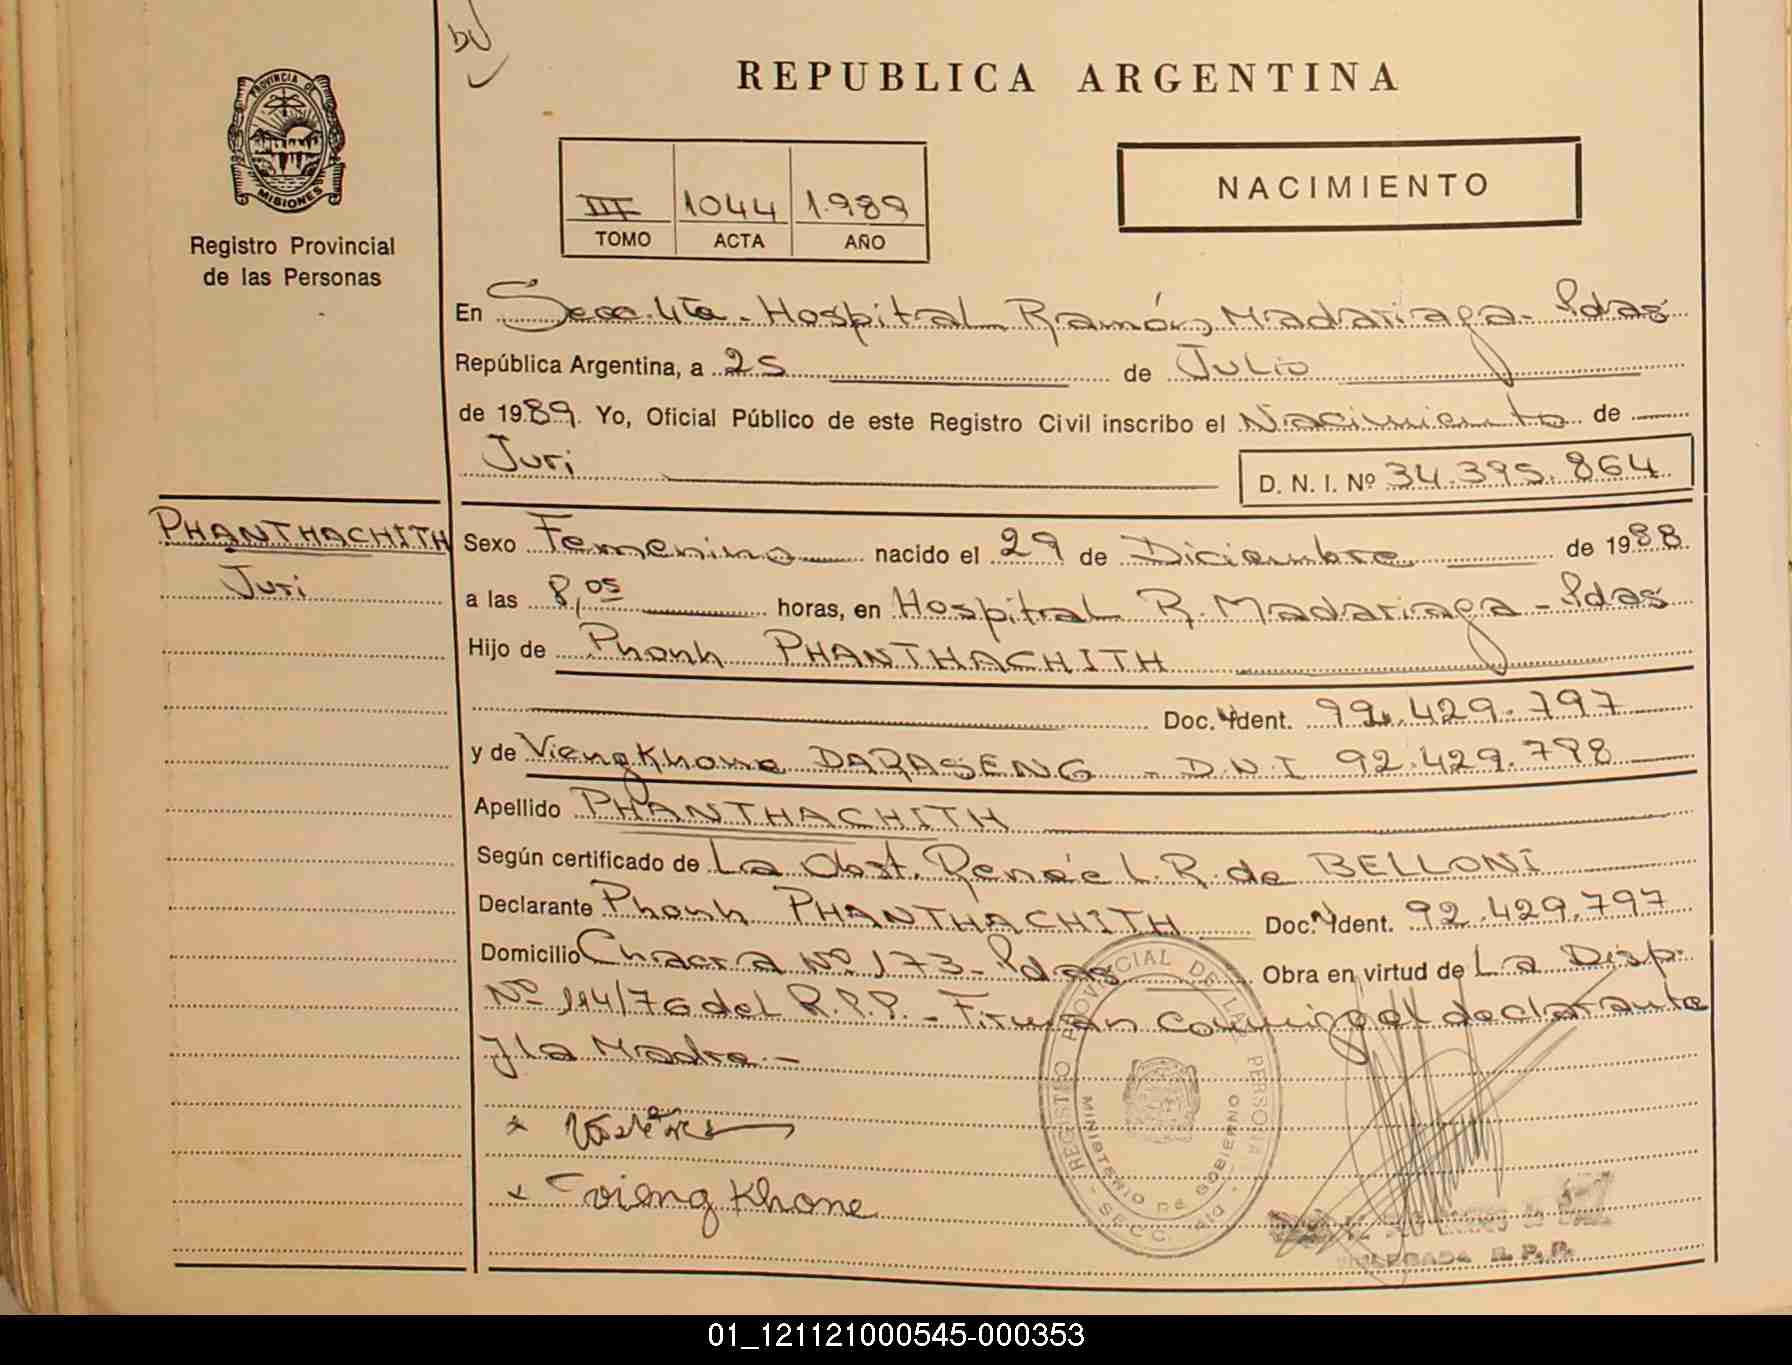 REPUBLICA ARGENTINA
PROVINCIA DE
MISIONES
Registro Provincial
de las Personas
III 1044 1.989
TOMO ACTA AÑO
NACIMIENTO
En Secc. 4ta - Hospital Ramón Madariaga - Pdas
República Argentina, a 25 de Julio
de 1989. Yo, Oficial Público de este Registro Civil inscribo el Nacimiento de
Juri
D. N. I. Nº 34.395.864
PHANTHACHITH
Juri
Sexo Femenino nacido el 29 de Diciembre de 1988
a las 8,05 horas, en Hospital R. Madariaga - Pdas
Hijo de Phonh PHANTHACHITH
Doc. Ydent. 92.429.797
y de Viengkhone DARASENG - D.N.I 92.429.798
Apellido PHANTHACHITH
Según certificado de La Obst. Renée L. R. de BELLONI
Declarante Phonh PHANTHACHITH Doc. Ydent. 92.429.797
Domicilio Chacra Nº 173 - Pdas Obra en virtud de La Disp.
Nº 114/76 del R.P.P. - Firman conmigo el declarante
y la Madre. -
x
x viengkhone
REGISTRO PROVINCIAL DE LAS PERSONAS
MINISTERIO DE GOBIERNO
SECC. 4ta
DELEGADA R. P. P.
01_121121000545-000353